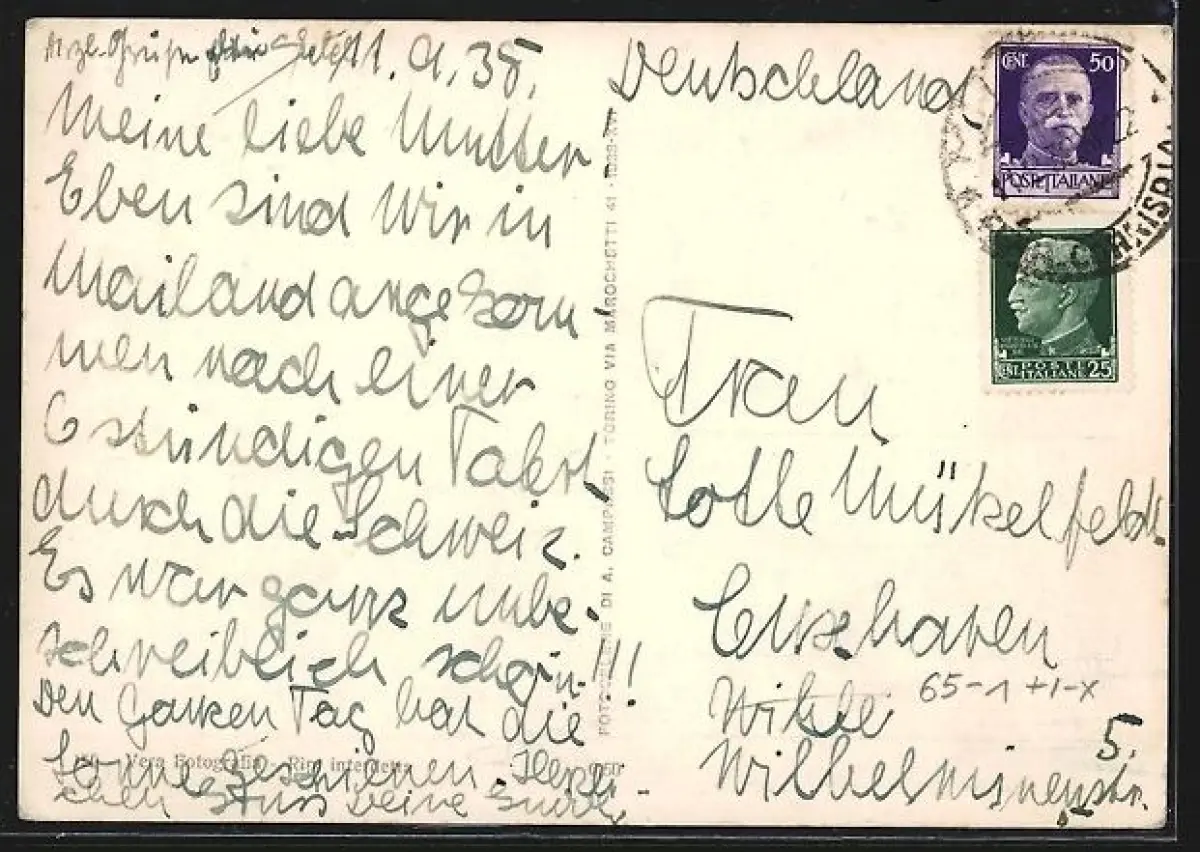 Herzl. Grüße 11. 9. 38.
Meine liebe Mutter
Eben sind wir in
Mailand angekom-
men nach einer
6 stündigen Fahrt
durch die Schweiz.
Es war ganz unbe-
schreiblich schön!!!
Den ganzen Tag hat die
Sonne geschienen. Herzli-
chen Gruss Deine
Vera Fotografia - Rip. interdetta
FOTOCELERE DI A. CAMPASSI - TORINO VIA MAROCHETTI 41 - 1938-XVI
Deutschland
CENT. 50
POSTE ITALIANE
POSTE
ITALIANE
CENT. 25
Frau
Lotte Mükelfeldt
Cuxhaven
65-1+1-x
5.
Wilhelminenstr.